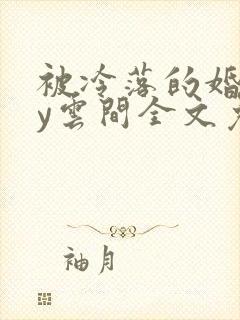 被冷落的婚
y雲間全文
袖月